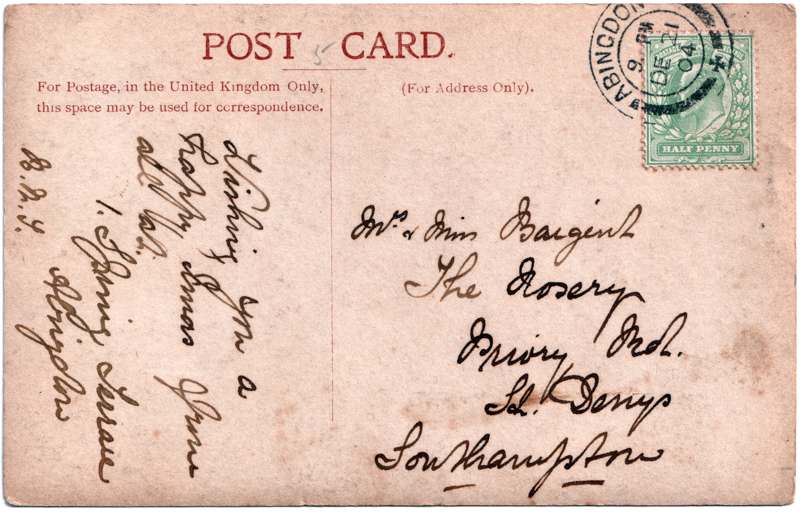 POST CARD.
5
For Postage, in the United Kingdom Only,
this space may be used for correspondence.
(For Address Only).
ABINGDON
9 PM
DE 21
04
HALF PENNY
Wishing you a
happy Xmas from
all
1. Spring Terrace
Abingdon
Mrs & Miss Bargent
The Rosery
Priory Rd.
St. Denys
Southampton